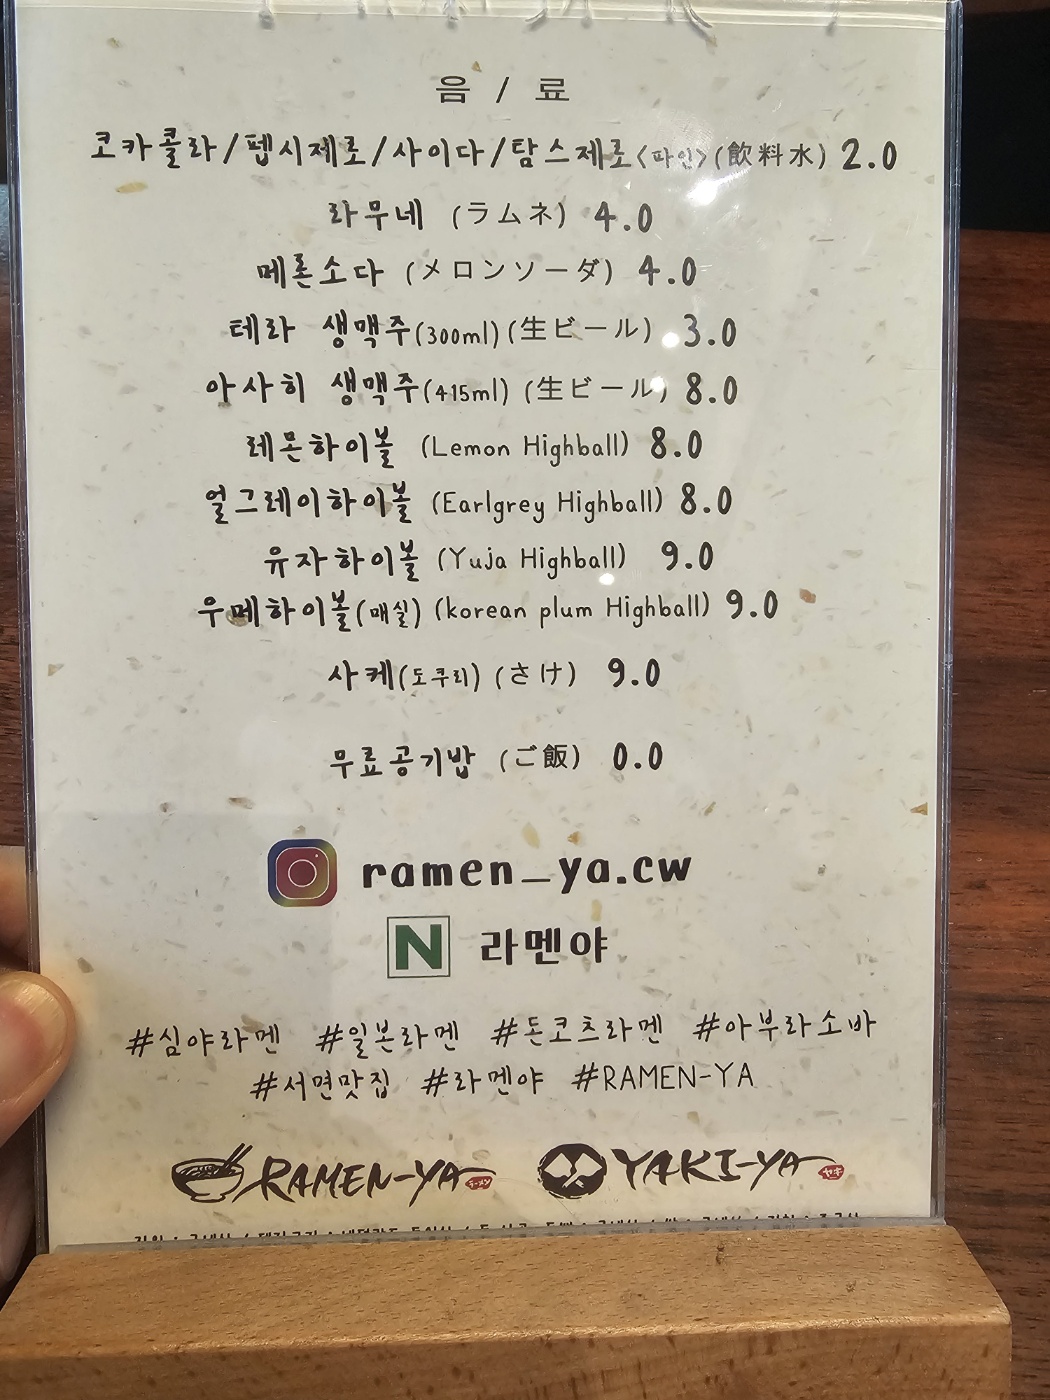 음 / 료
코카콜라/펩시제로/사이다/탐스제로<파인>(飲料水) 2.0
라무네 (ラムネ) 4.0
메론소다 (メロンソーダ) 4.0
테라 생맥주(300ml)(生ビール) 3.0
아사히 생맥주(415ml) (生ビール) 8.0
레몬하이볼 (Lemon Highball) 8.0
얼그레이하이볼 (Earlgrey Highball) 8.0
유자하이볼 (Yuja Highball) 9.0
우메하이볼(매실) (korean plum Highball) 9.0
사케(도쿠리) (さけ) 9.0
무료공기밥 (ご飯) 0.0
ramen_ya.cw
N 라멘야
#심야라멘 #일본라멘 #돈코츠라멘 #아부라소바
#서면맛집 #라멘야 #RAMEN-YA
RAMEN-YA ラーメン YAKI-YA ヤキ